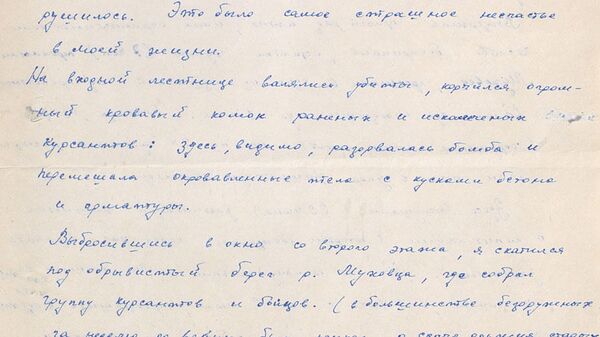 рушилось. Это было самое страшное несчастье
в моей жизни.
На входной лестнице валялись убитые, корчился огром-
ный кровавый комок раненых и искалеченных
курсантов: здесь, видимо, разорвалась бомба и
перемешала окровавленные тела с кусками бетона
и арматуры.
Выбросившись в окно со второго этажа, я скатился
под обрывистый берег р. Муховца, где собрал
группу курсантов и бойцов. (в большинстве безоружных
за неделю до